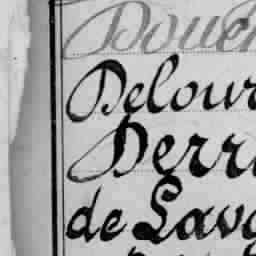 Doue
Delour
Derr
de Lava